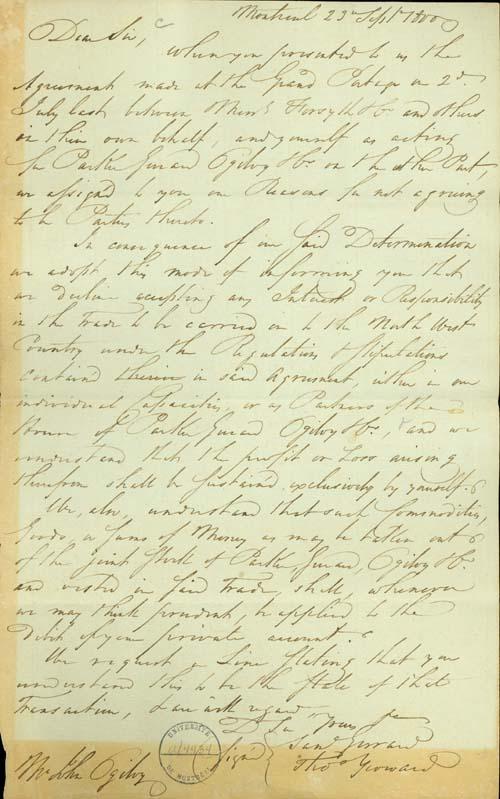 Montreal 23rd Sept 1800
Dear Sir,
When you presented to us the
Agreement made at the Grand Portage on 2d.
July last between Messrs Forsyth & Co and others
in their own behalf, and yourself as acting
for Parker Gerrard Ogilvy & Co on the other Part,
we assigned to you our Reasons for not agreeing
to be Parties thereto.
In consequence of our said Determination
we adopt this mode of informing you that
we decline accepting any Interest or Responsibility
in the Trade to be carried on to the North West
Country under the Regulations & Stipulations
contained in said Agreement, either in our
individual Capacities, or as Partners of the
House of Parker Gerrard Ogilvy & Co, and we
understand that the profit or Loss arising
therefrom shall be sustained exclusively by yourself.
We, also, understand that such Commodities,
Goods, or Sums of Money as may be taken out
of the joint Stock of Parker Gerrard, Ogilvy & Co.
and vested in said Trade, shall, whenever
we may think prudent, be applied to the
Debit of your private account.
We request a Line stating that you
understand this to be the State of that
Transaction, & are with regard
Dr Sir Yours &c
Signed Saml Gerrard
Thos Yeoward
UNIVERSITÉ
DE MONTRÉAL
Mr John Ogilvy